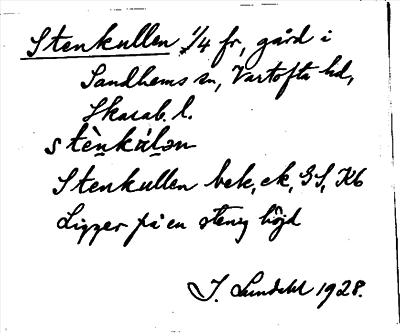 Stenkullen 1/4 fr, gård i
Sandhems sn, Vartofta hd,
Skarab. l.
stènkúlən
Stenkullen bek, ek, GS, Kb
Ligger på en stenig höjd
J. Lundahl 1928.